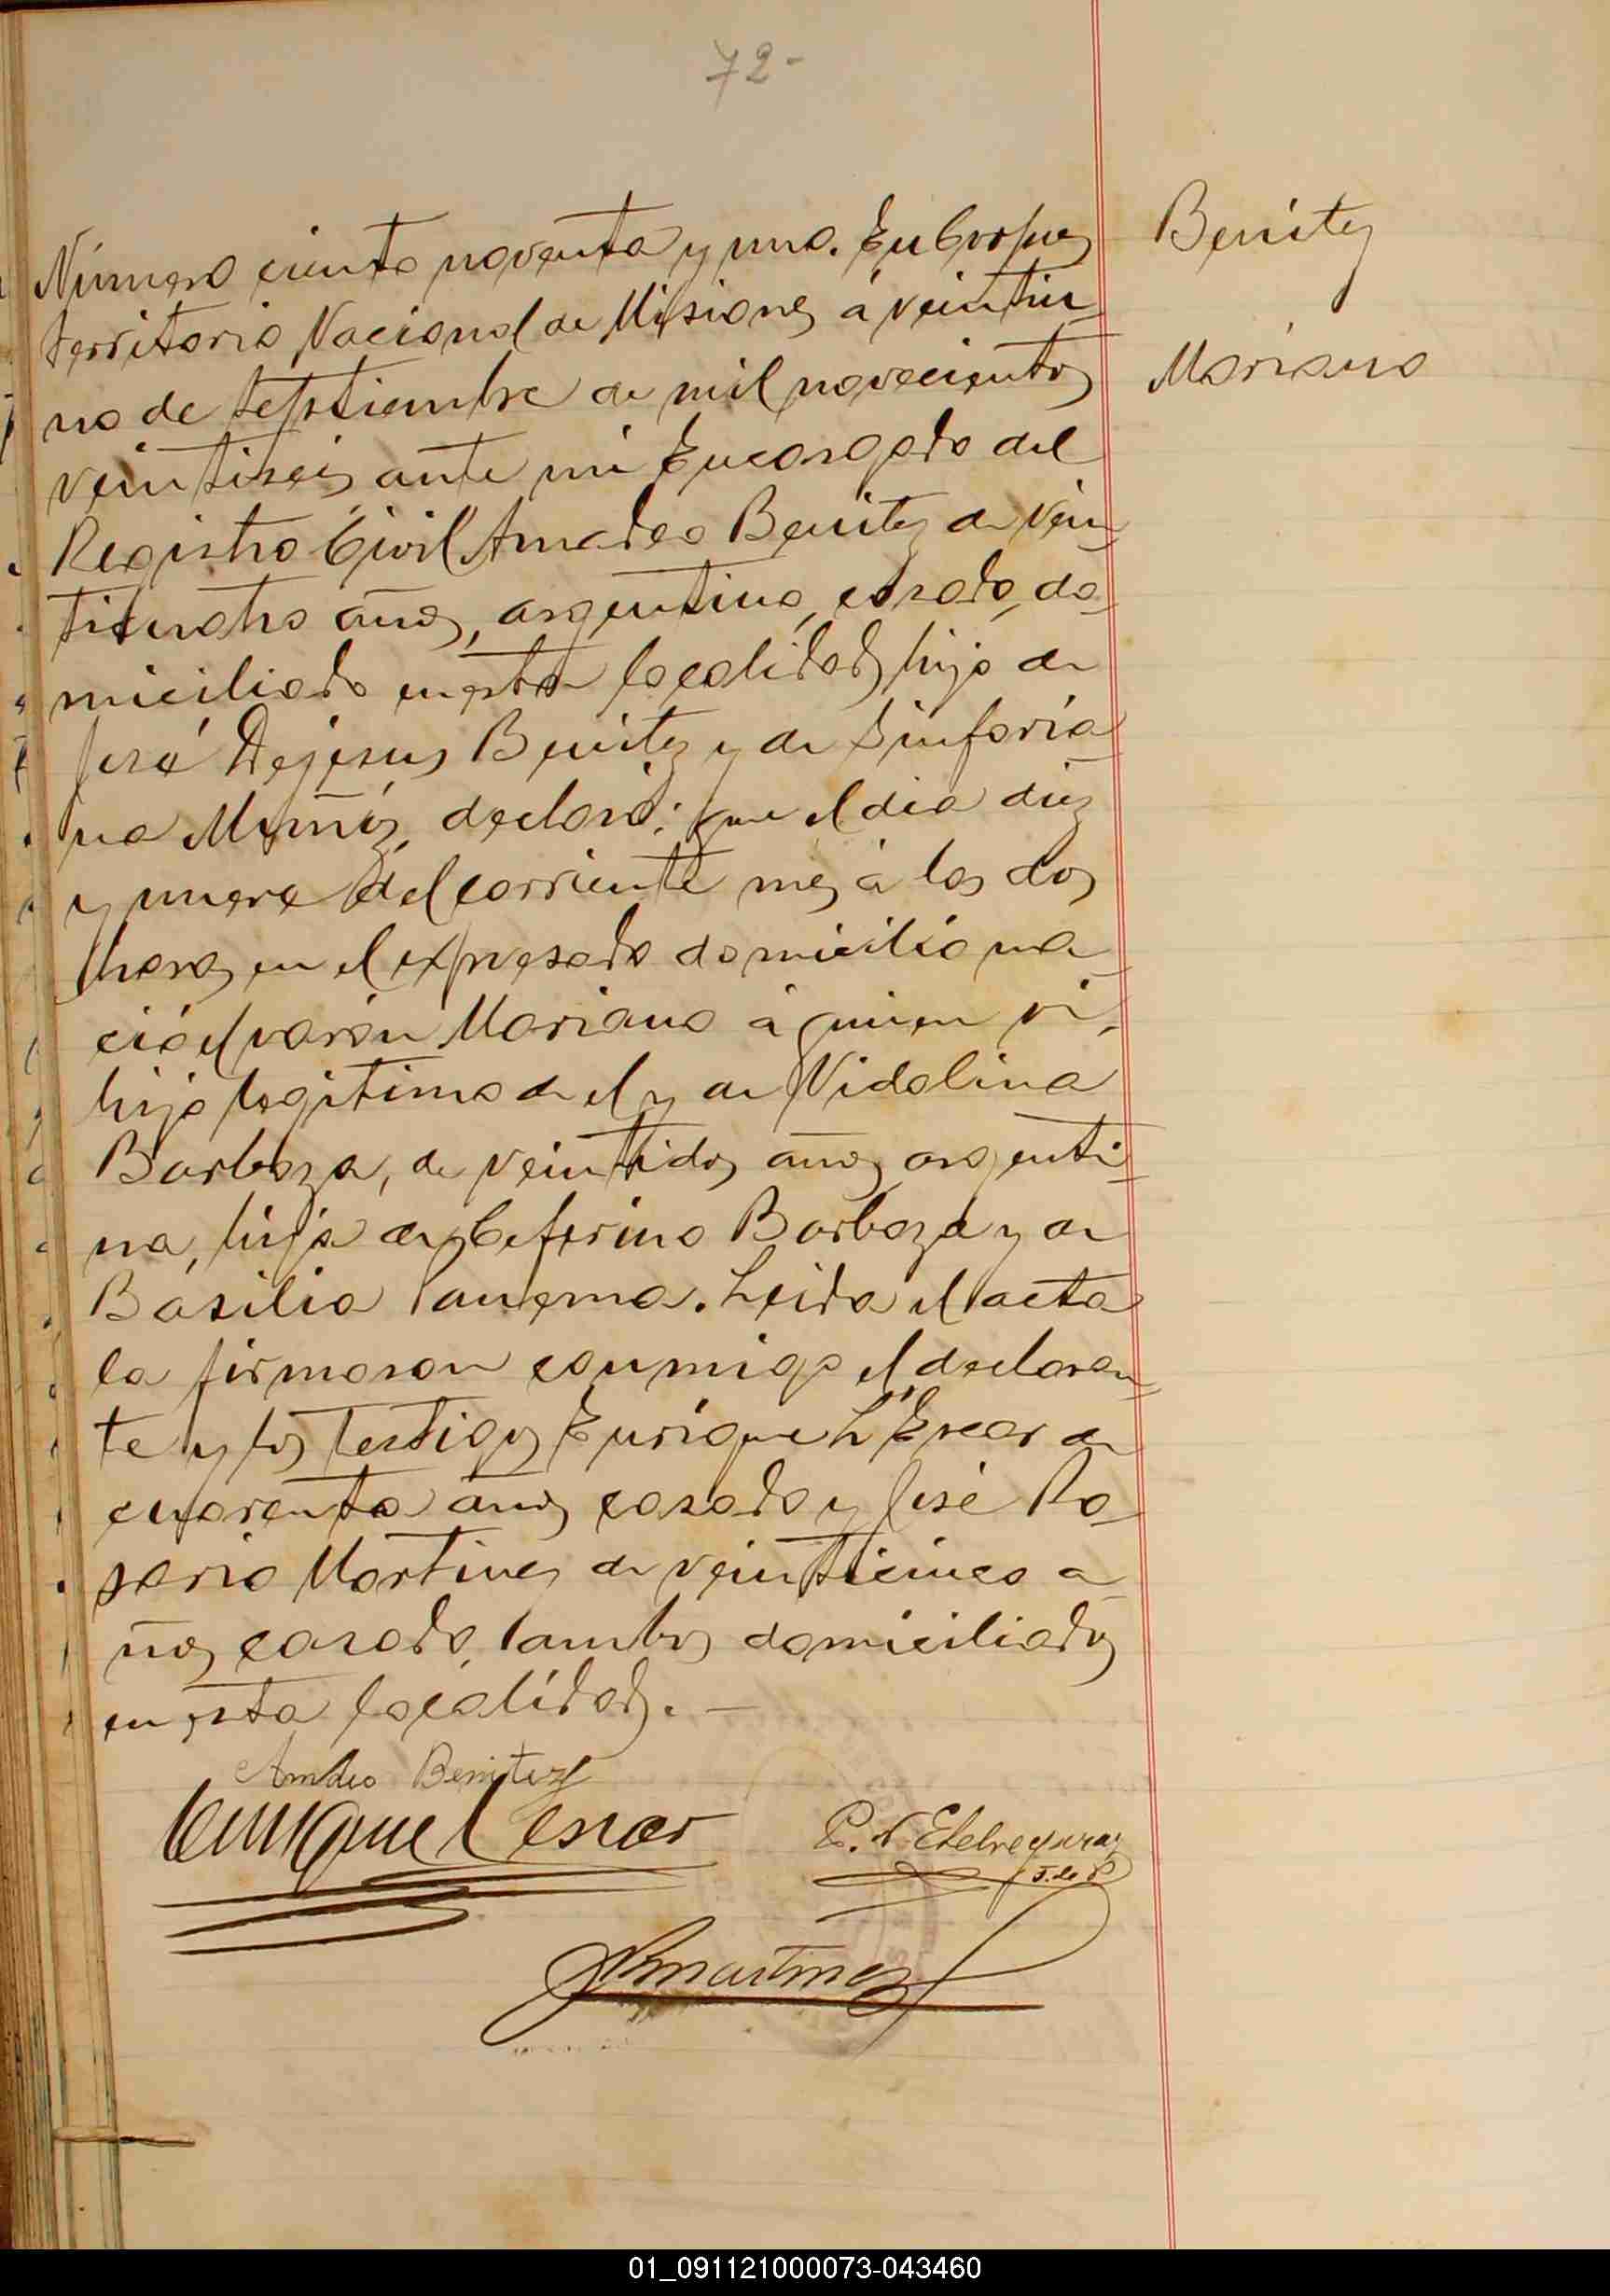 72-
Benitez
Mariano
Número ciento noventa y uno. En Corpus
territorio Nacional de Misiones á veintiu-
no de Septiembre de mil novecientos
veintiseis ante mi Encargado del
Registro Civil Amadeo Benitez de vein-
ticuatro años, argentino, casado, do-
miciliado en esta localidad, hijo de
José Dejesus Benitez y de Sinforia-
na Muñiz, declaró: que el dia diez
y nueve del corriente mes á las dos
horas en el expresado domicilio na-
ció el varón Mariano á quien vi,
hijo legitimo de el y de Vidalina
Barboza, de veintidos años, argenti-
na, hija de Ceferino Barboza y de
Basilia Panema. Leida el acta
la firmaron conmigo el declaran-
te y los testigos Enrique L'Escar de
cuarenta años casado y José Ro-
sario Martinez de veinticinco a-
ños casado, ambos domiciliados
en esta localidad. —
Amdeo Benitez
Enrique Lescar
P. N. Etchegaray
J. de P.
JRMartinez
01_091121000073-043460